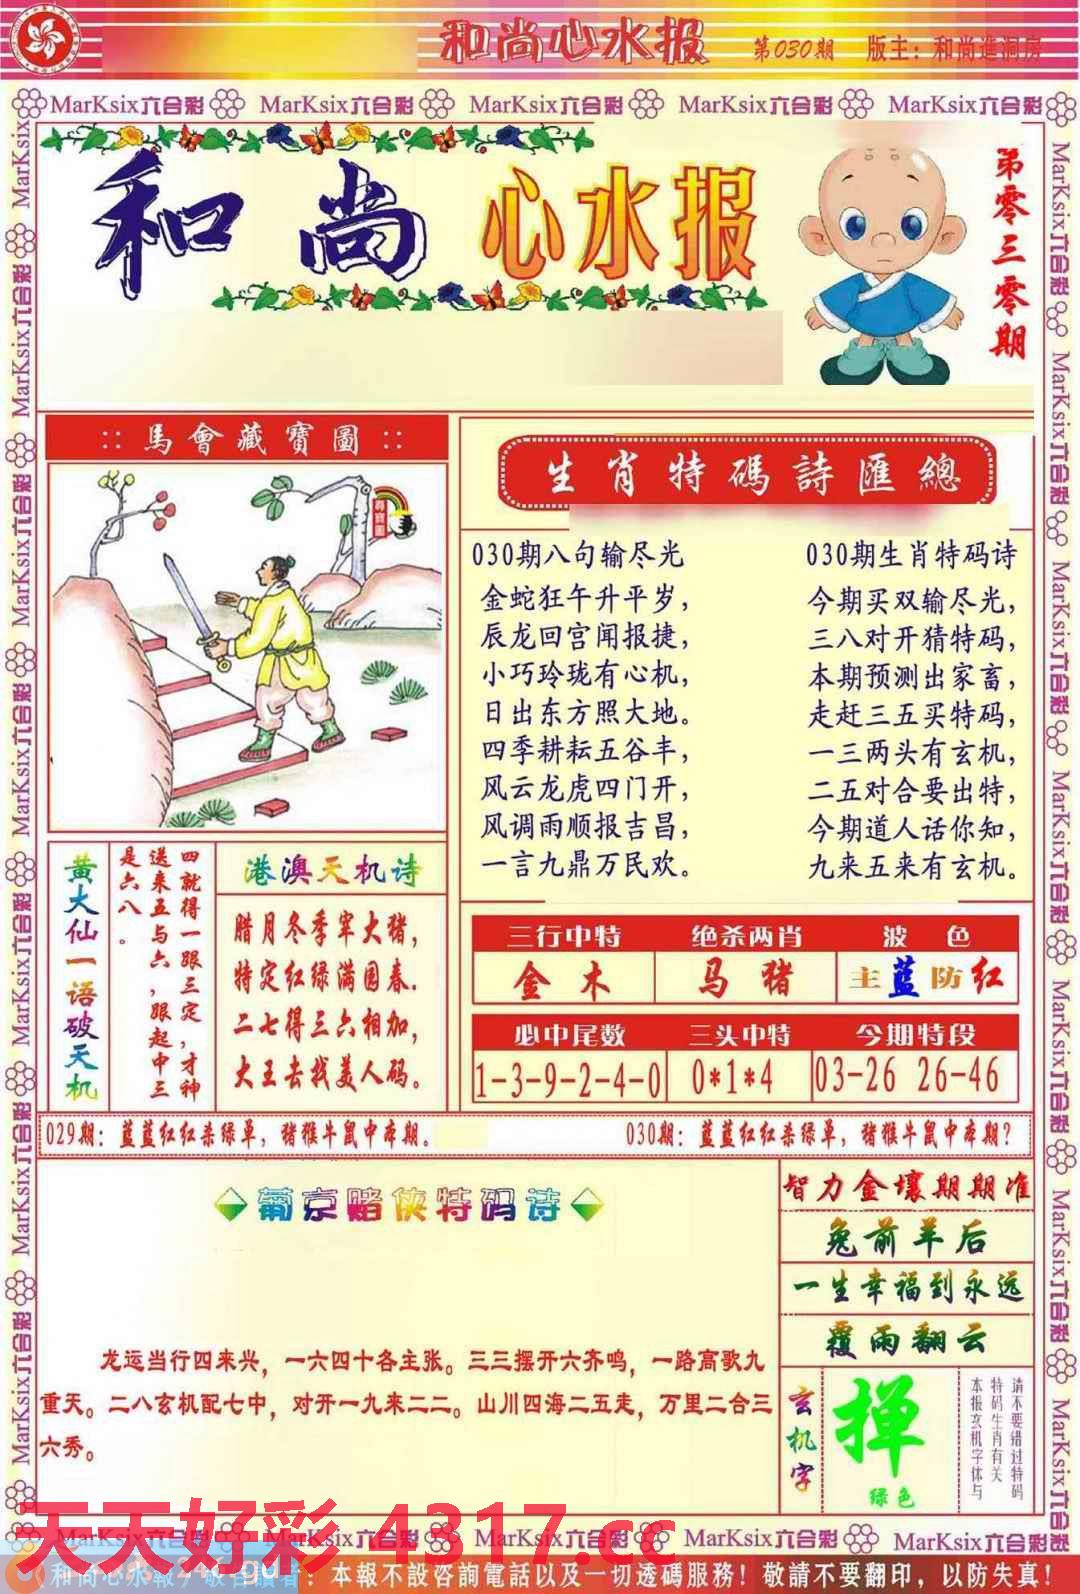 和尚心水报 第030期 版主：和尚進洞房
MarKsix六合彩 MarKsix六合彩 MarKsix六合彩 MarKsix六合彩 MarKsix六合彩
和尚心水报
第零三零期
::馬會藏寶圖::
生肖特碼詩匯總
030期八句输尽光
金蛇狂午升平岁，
辰龙回宫闻报捷，
小巧玲珑有心机，
日出东方照大地。
四季耕耘五谷丰，
风云龙虎四门开，
风调雨顺报吉昌，
一言九鼎万民欢。
030期生肖特码诗
今期买双输尽光，
三八对开猜特码，
本期预测出家畜，
走赶三五买特码，
一三两头有玄机，
二五对合要出特，
今期道人话你知，
九来五来有玄机。
黄大仙一语破天机
四就得一跟三定，才神
送来五与六，跟起中三
是六八。
港澳天机诗
腊月冬季宰大猪，
特定红绿满园春.
二七得三六相加，
大王去找美人码。
三行中特 绝杀两肖 波色
金木 马猪 主蓝防红
必中尾数 三头中特 今期特段
1-3-9-2-4-0 0*1*4 03-26 26-46
029期：蓝蓝红红杀绿单，猪猴牛鼠中本期。
030期：蓝蓝红红杀绿单，猪猴牛鼠中本期？
葡京赌侠特码诗
龙运当行四来兴，一六四十各主张。三三摆开六齐鸣，一路高歌九
重天。二八玄机配七中，对开一九来二二。山川四海二五走，万里二合三
六秀。
智力金壤期期准
兔前羊后
一生幸福到永远
覆雨翻云
玄机字
掸
绿色
请不要错过特码
特码生肖有关
本报玄机字体与
MarKsix六合彩 MarKsix六合彩 MarKsix六合彩 MarKsix六合彩
天天好彩 4317.cc
和尚心水報 敬告讀者：本報不設咨詢電話以及一切透碼服務！敬請不要翻印，以防失真！